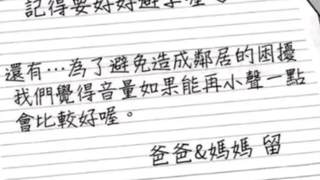 記得要好好避孕喔
還有…為了避免造成鄰居的困擾
我們覺得音量如果能再小聲一點
會比較好喔。
爸爸&媽媽 留